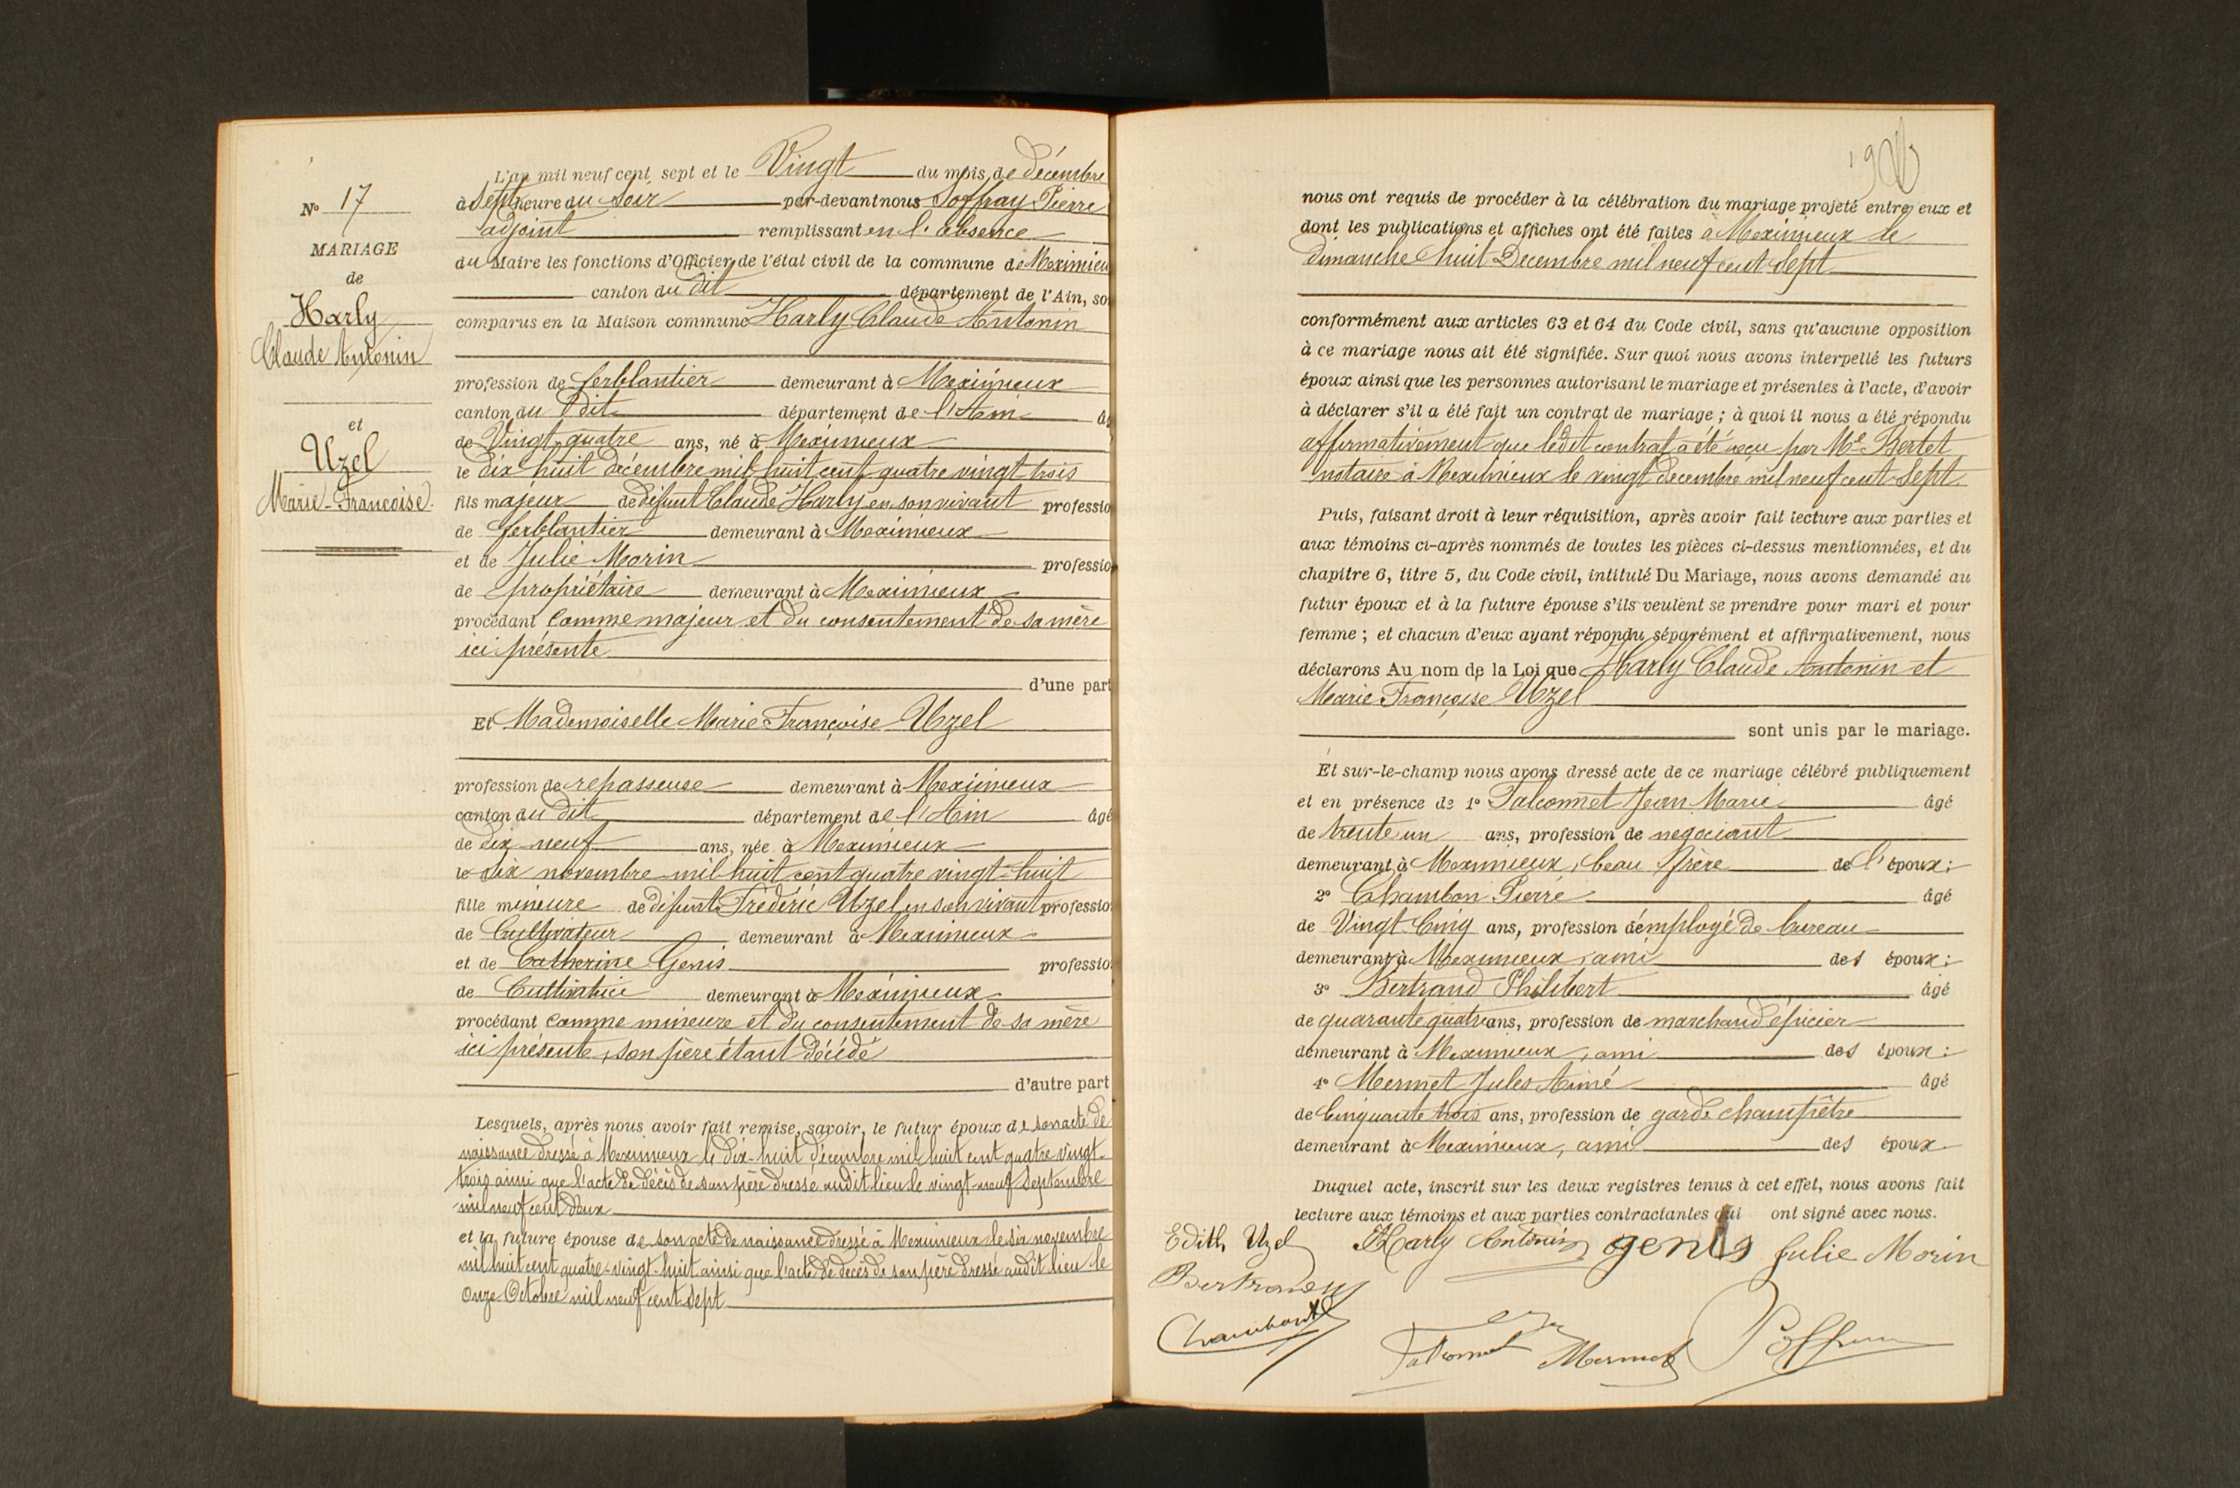 N° 17
MARIAGE
de
Harly
Claude Antonin
et
Uzel
Marie-Francoise.
L'an mil neuf cent sept et le Vingt du mois de décembre
à Sept heure du Soir par-devant nous Joffray Pierre
adjoint remplissant en l'absence
du Maire les fonctions d'Officier de l'état civil de la commune de Meximieu
canton du dit département de l'Ain, so
comparus en la Maison commune Harly Claude Antonin
profession de ferblantier demeurant à Meximieux
canton du dit département de l'Ain âg
de Vingt-quatre ans, né à Meximieux
le dix huit décembre mil huit cent quatre vingt trois
fils majeur de défunt Claude Harly en son vivant professio
de ferblantier demeurant à Meximieux
et de Julie Morin professio
de propriétaire demeurant à Meximieux
procédant comme majeur et du consentement de sa mère
ici présente
d'une part
Et Mademoiselle Marie Françoise Uzel
profession de repasseuse demeurant à Meximieux
canton du dit département de l'Ain âgé
de dix-neuf ans, née à Meximieux
le Six novembre mil huit cent quatre vingt-huit
fille mineure de défunt Frédéric Uzel en son vivant professio
de Cultivateur demeurant à Meximieux
et de Catherine Genis professio
de Cultivatrice demeurant à Meximieux
procédant comme mineure et du consentement de sa mère
ici présente, son père étant décédé
d'autre part
Lesquels, après nous avoir fait remise, savoir, le futur époux de son acte de
naissance dressé à Meximieux le dix-huit décembre mil huit cent quatre vingt-
trois ainsi que l'acte de décès de son père dressé audit lieu le vingt-neuf Septembre
mil neuf cent deux
et la future épouse de son acte de naissance dressé à Meximieux le six novembre
mil huit cent quatre-vingt-huit ainsi que l'acte de décès de son père dressé audit lieu le
onze Octobre mil neuf cent sept
nous ont requis de procéder à la célébration du mariage projeté entre eux et
dont les publications et affiches ont été faites à Meximieux le
dimanche huit Decembre mil neuf cent sept
conformément aux articles 63 et 64 du Code civil, sans qu'aucune opposition
à ce mariage nous ait été signifiée. Sur quoi nous avons interpellé les futurs
époux ainsi que les personnes autorisant le mariage et présentes à l'acte, d'avoir
à déclarer s'il a été fait un contrat de mariage ; à quoi il nous a été répondu
affirmativement que ledit contrat a été reçu par Me Bertet
notaire à Meximieux le vingt decembre mil neuf cent-Sept
Puis, faisant droit à leur réquisition, après avoir fait lecture aux parties et
aux témoins ci-après nommés de toutes les pièces ci-dessus mentionnées, et du
chapitre 6, titre 5, du Code civil, intitulé Du Mariage, nous avons demandé au
futur époux et à la future épouse s'ils veulent se prendre pour mari et pour
femme ; et chacun d'eux ayant répondu séparément et affirmativement, nous
déclarons Au nom de la Loi que Harly Claude Antonin et
Marie Françoise Uzel
sont unis par le mariage.
Et sur-le-champ nous avons dressé acte de ce mariage célébré publiquement
et en présence de 1° Falconnet Jean Marie âgé
de trente un ans, profession de negociant
demeurant à Meximieux, beau frère de l'époux ;
2° Chambon Pierre âgé
de Vingt Cinq ans, profession d'employé de bureau
demeurant à Meximieux, ami des époux ;
3° Bertrand Philibert âgé
de quarante quatre ans, profession de marchand épicier
demeurant à Meximieux, ami des époux ;
4° Mermet Jules Aimé âgé
de Cinquante trois ans, profession de garde champêtre
demeurant à Meximieux, ami des époux
Duquel acte, inscrit sur les deux registres tenus à cet effet, nous avons fait
lecture aux témoins et aux parties contractantes qui ont signé avec nous.
Edith Uzel Harly Antonin genis Julie Morin
Bertrand
Chambon Falconnet Mermet Joffray